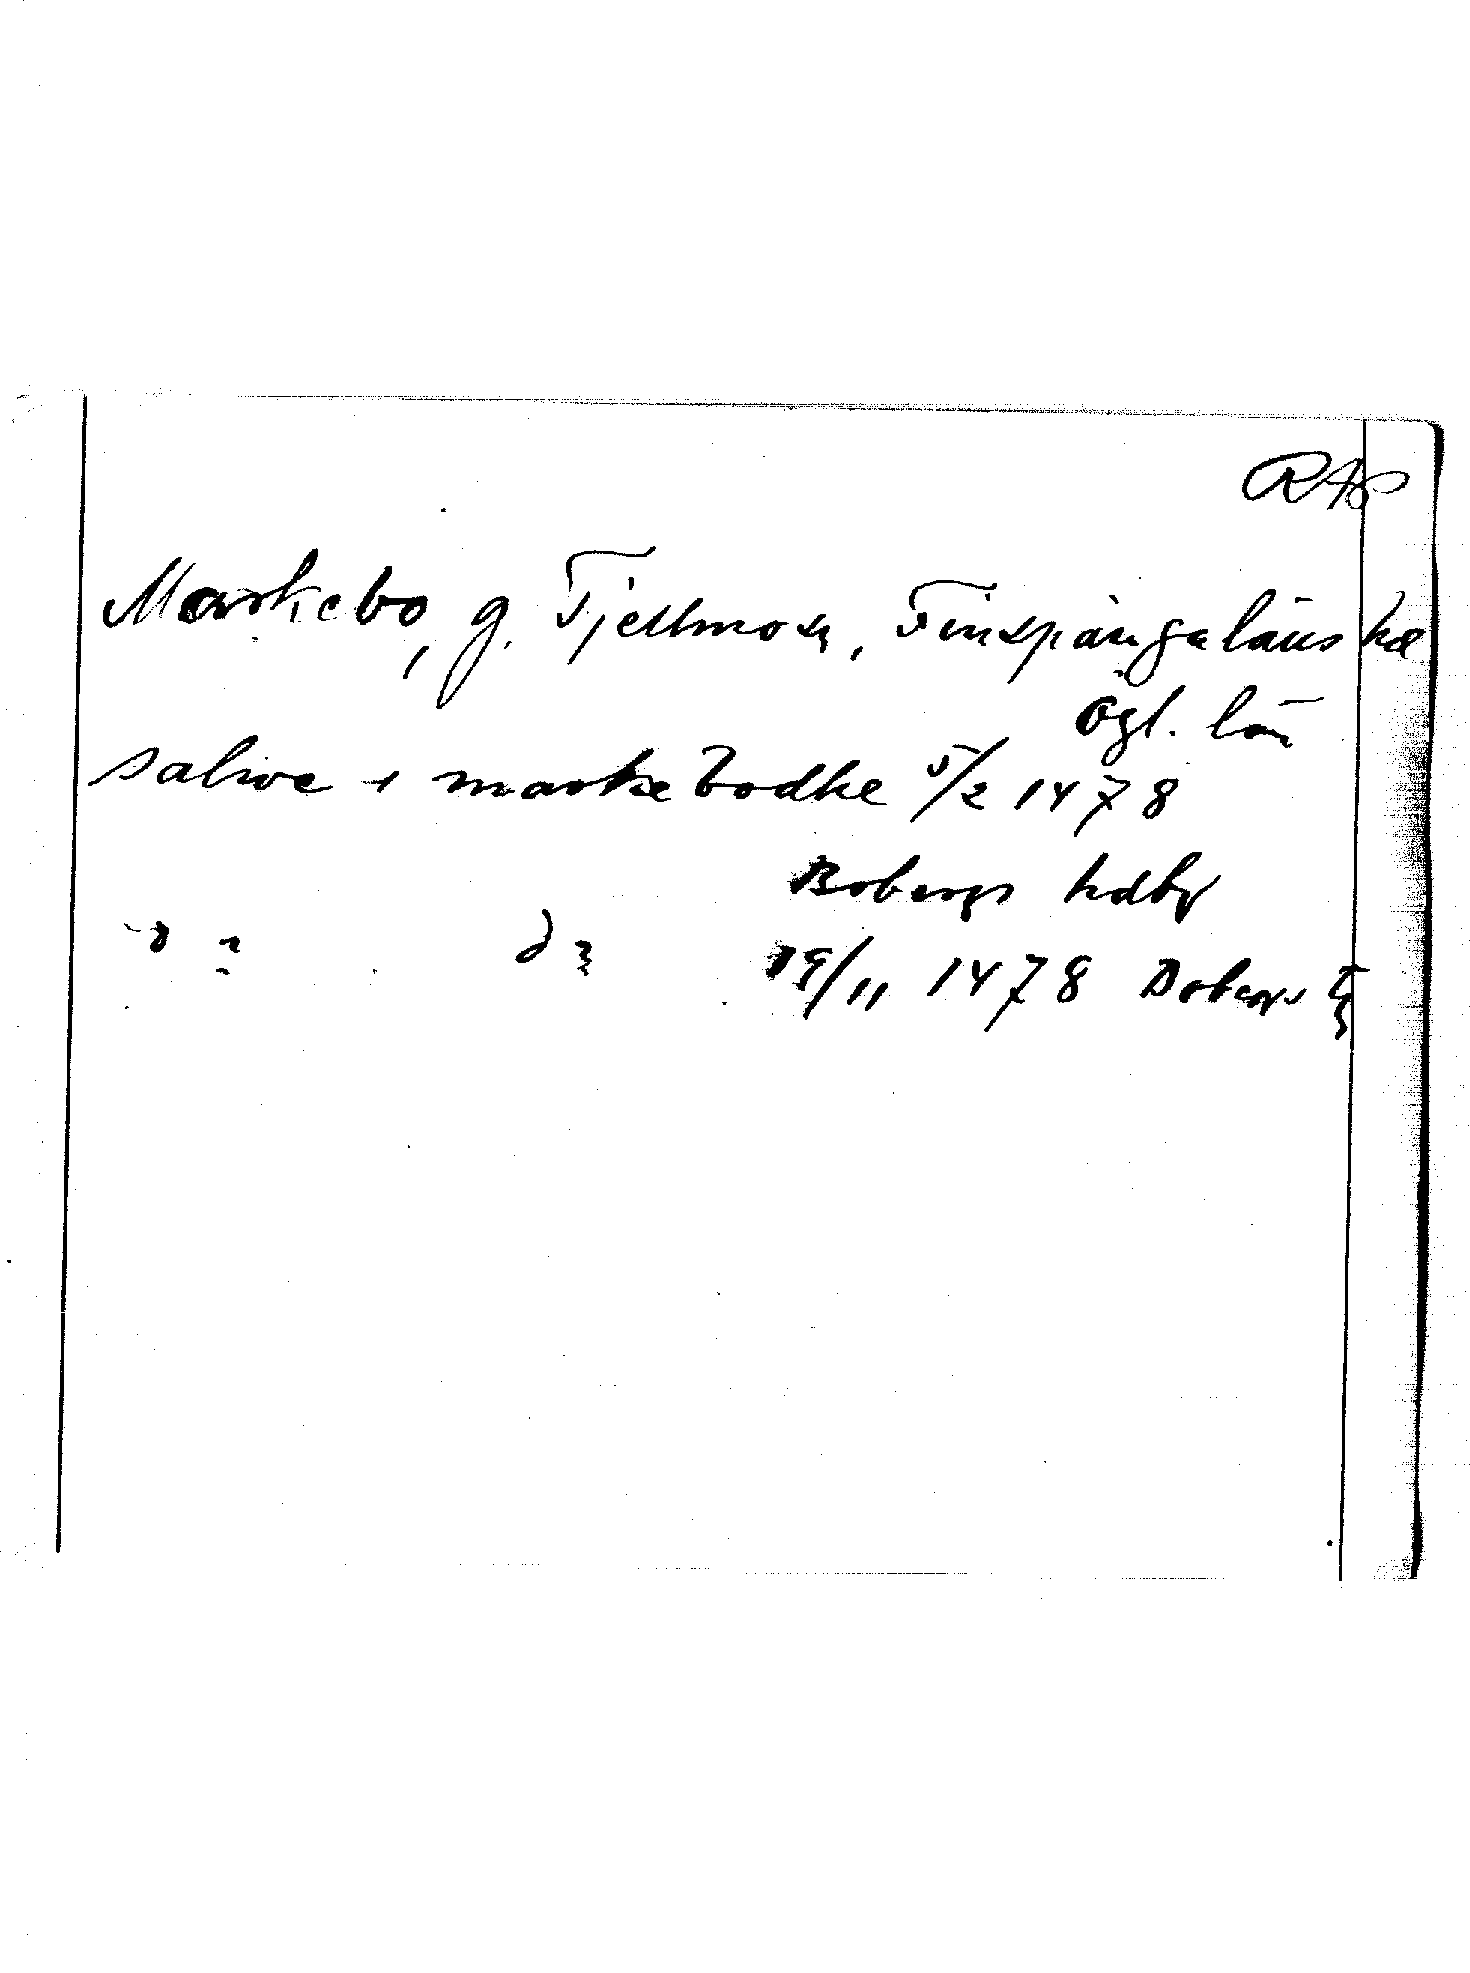 RAP
Markebo, g. Tjellmo sn, Finspångaläns hd
Ögl. län
salwe i markebodhe 5/2 1478
Bobergs hdbr
19/11 1478 Bobergs